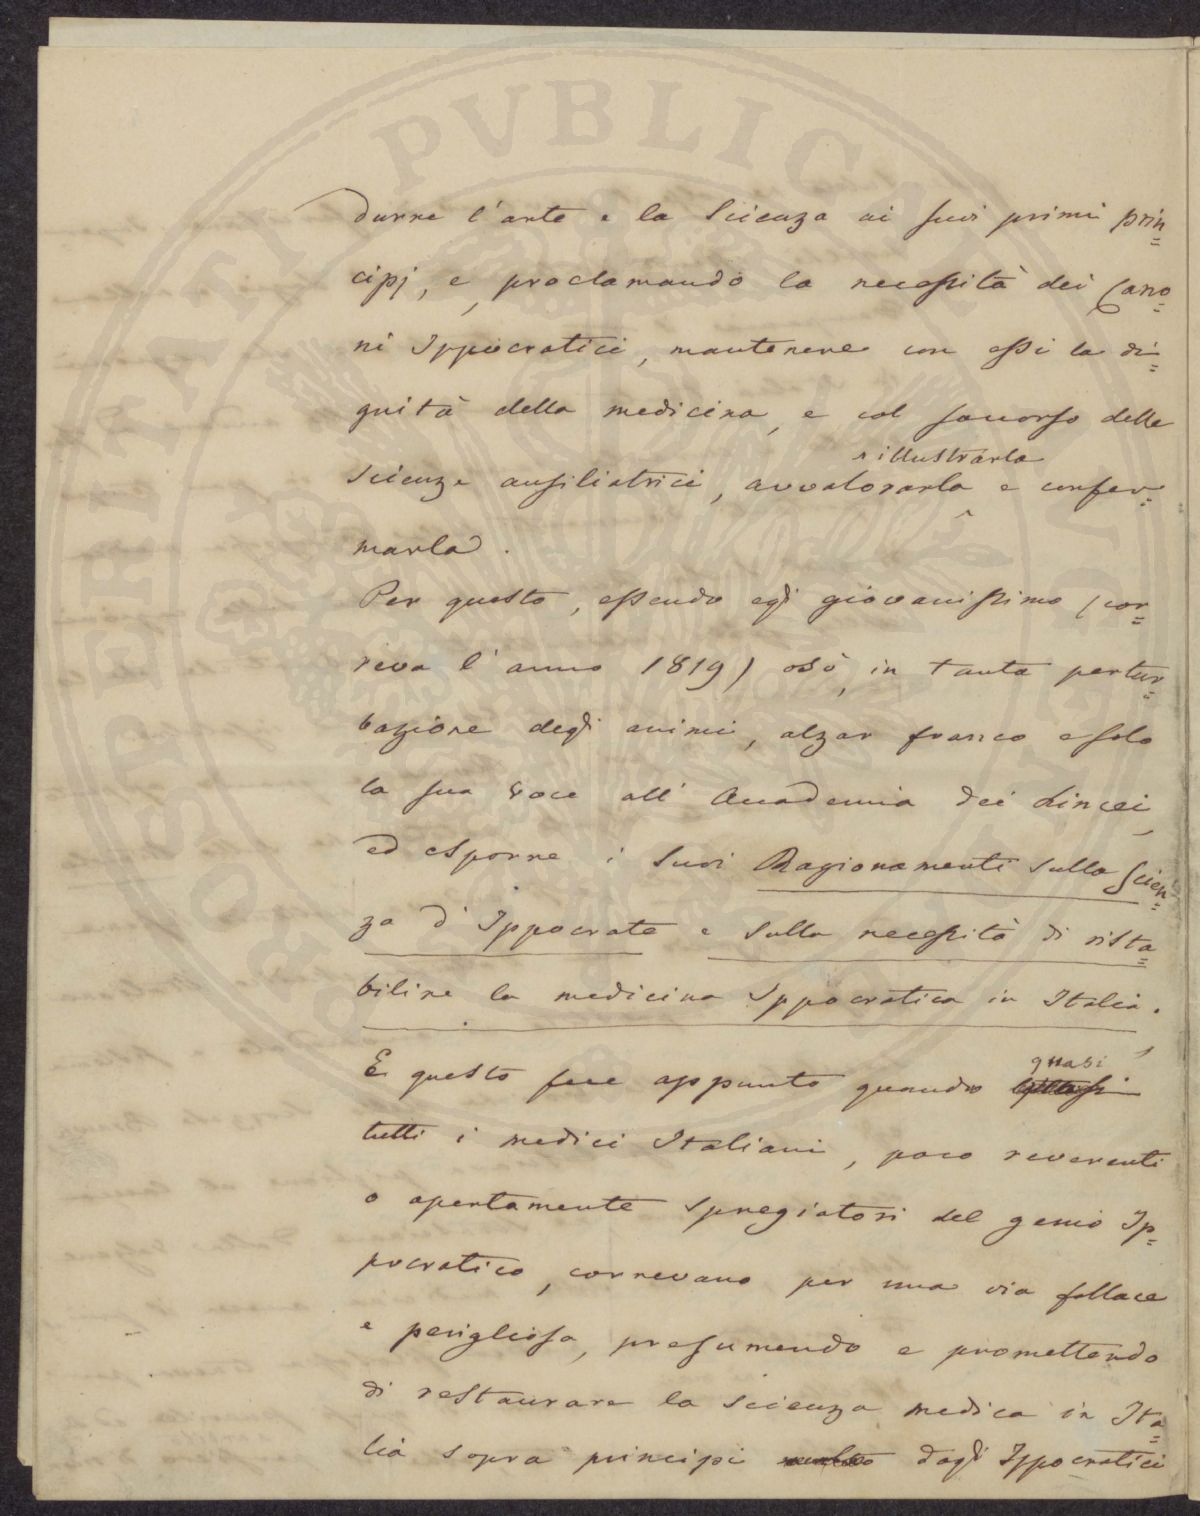 durre l'arte e la Scienza ai suoi primi prin=
cipj, e, proclamando la necessità dei Cano=
ni Ippocratici, mantenere con essi la di=
gnità della medicina, e col soccorso delle
rillustrarla
scienze ausiliatrici, avvalorarla e confer=
marla.
Per questo, essendo egli giovanissimo (cor=
reva l'anno 1819) osò, in tanta pertur=
bazione degli animi, alzar franco e solo
la sua voce all'Accademia dei Lincei,
ed esporre i suoi Ragionamenti sulla Scien=
za d'Ippocrate e sulla necessità di rista=
bilire la medicina Ippocratica in Italia.
quasi
E questo fece appunto quando quasi
tutti i medici Italiani, poco reverenti
o apertamente spregiatori del genio Ip=
pocratico, correvano per una via fallace
e perigliosa, presumendo e promettendo
di restaurare la scienza medica in Ita=
lia sopra principi dagli Ippocratici
PROSPERITATI PVBLICAE AVGENDAE